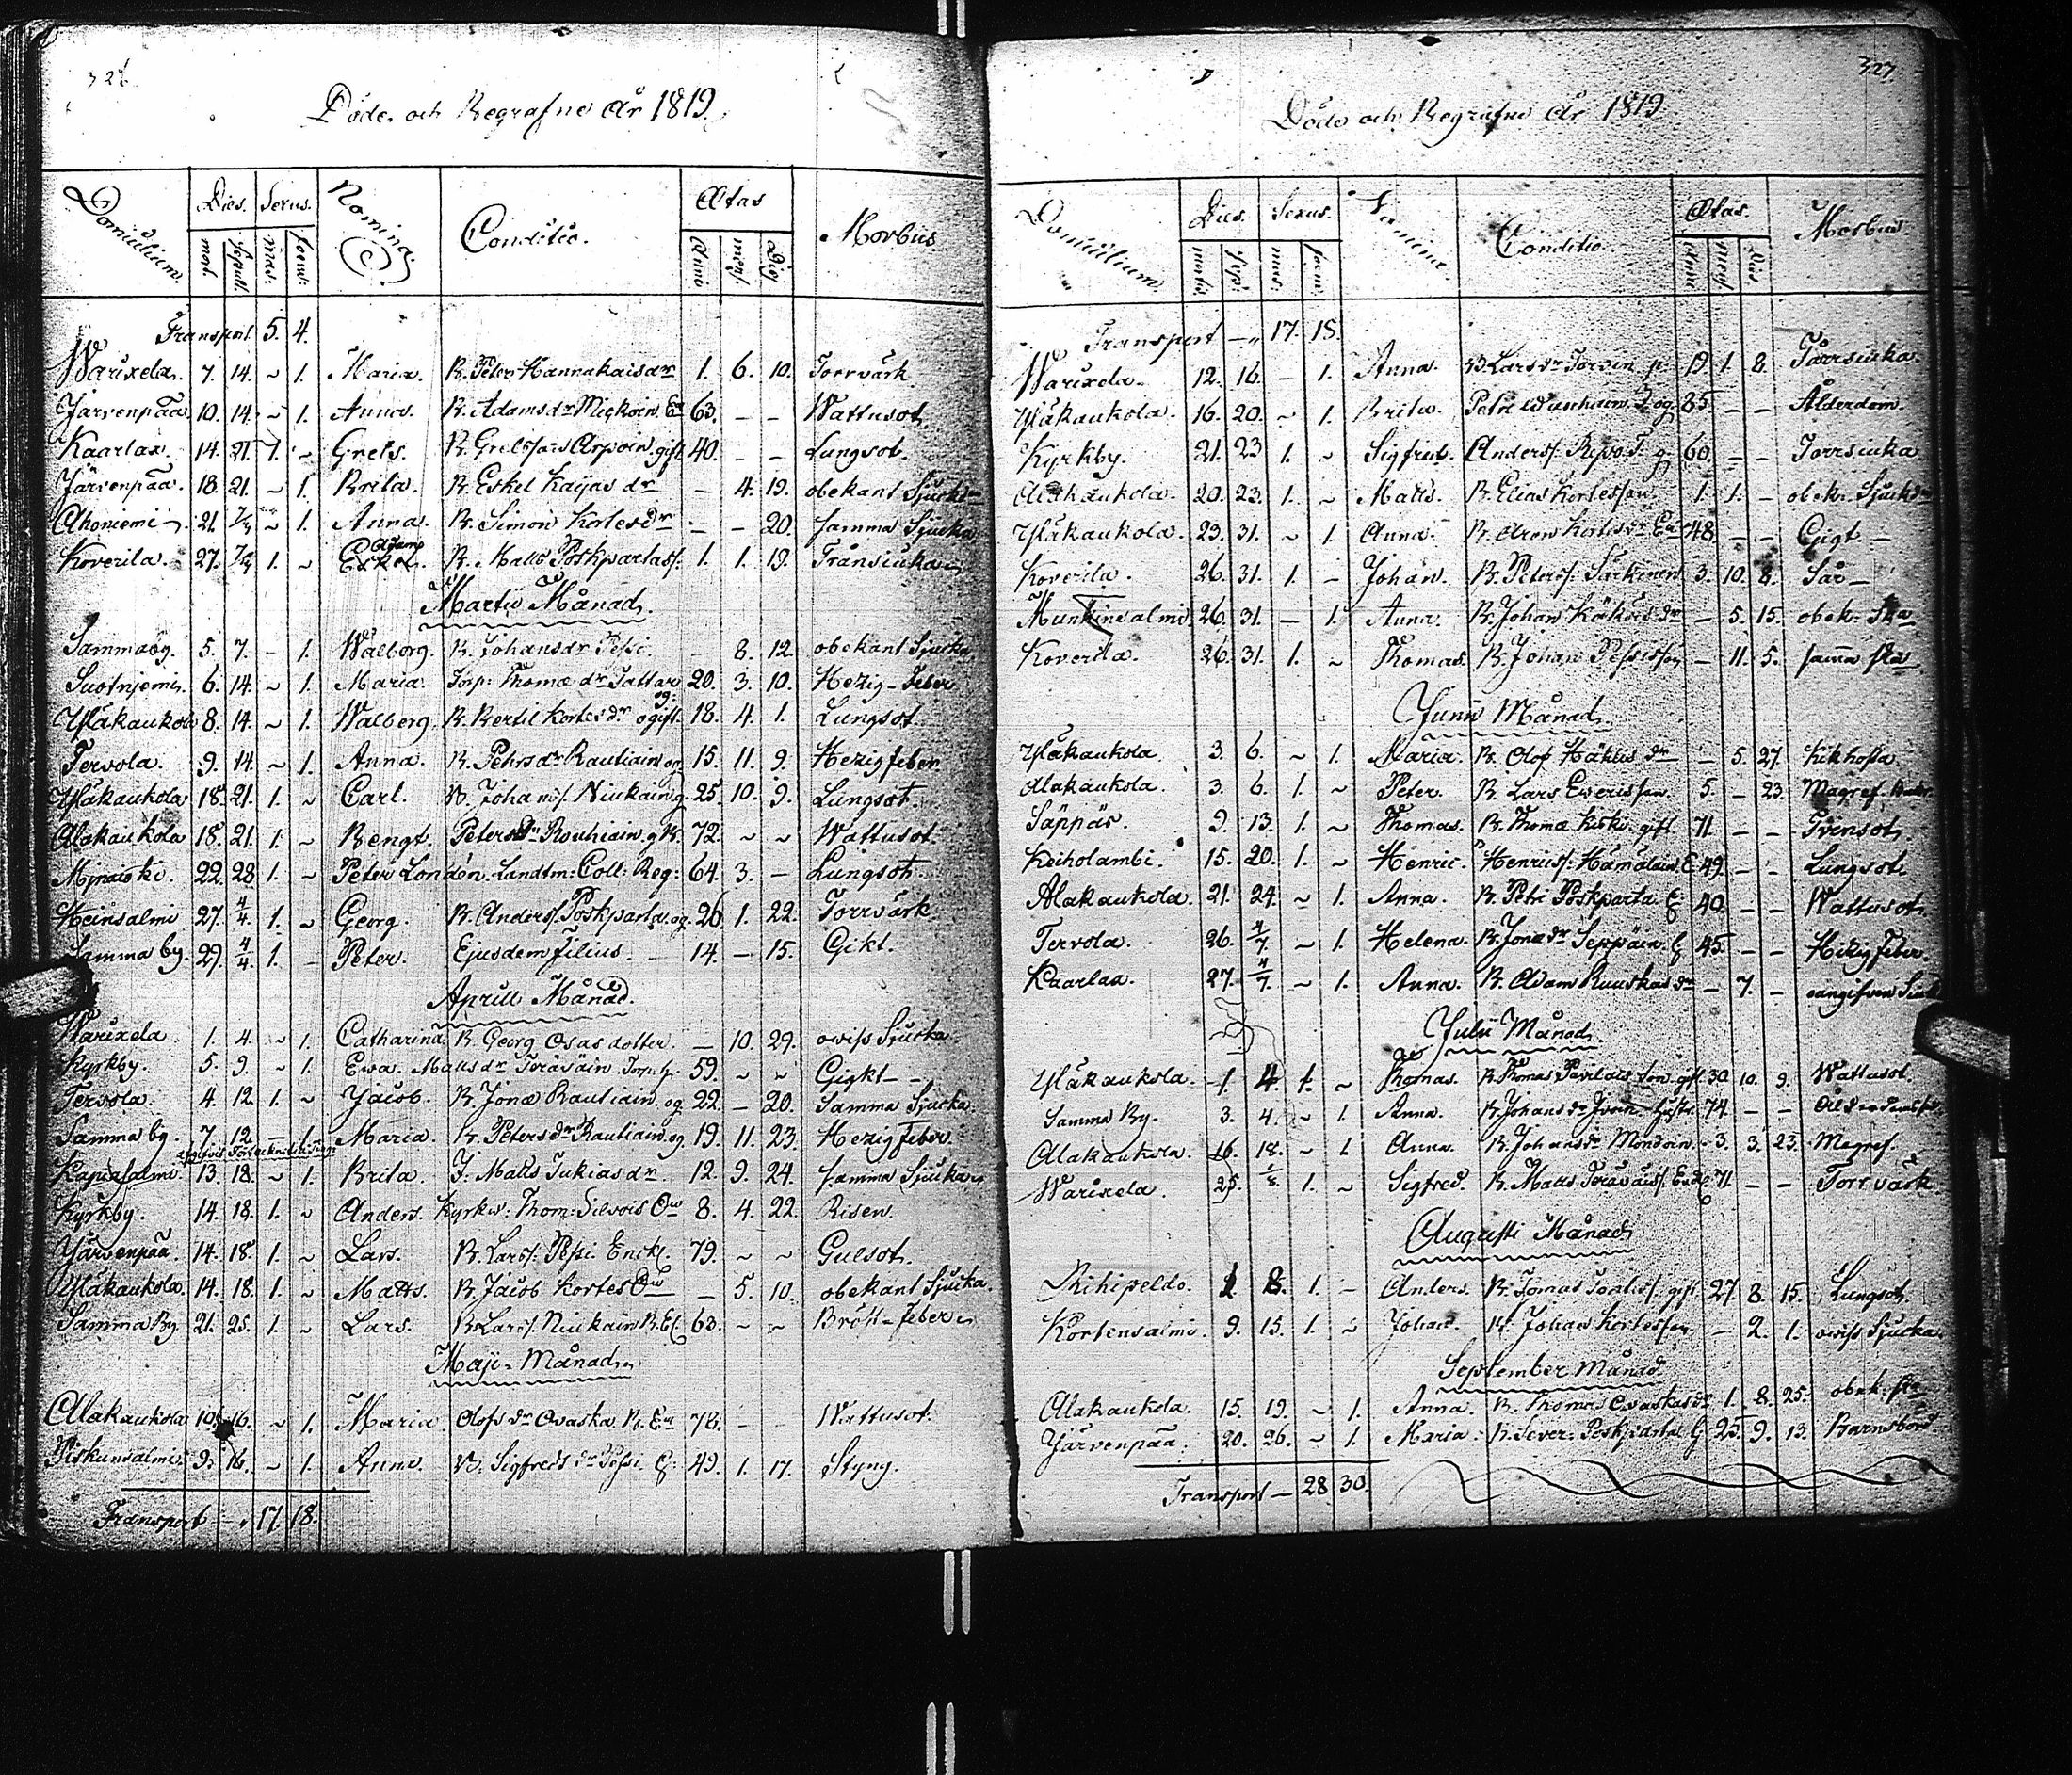 326
Döde och Begrafne År 1819.
Domicilium. Dies. Sexus. Nomina. Conditio. Ætas Morbus.
mort. sepult. mas. foem: Anno mens. Dies
Transport 5. 4.
Warixela. 7. 14. ~ 1. Maria. B. Peter Hannakaisdr 1. 6. 10. Torrvärk.
Järvenpää. 10. 14. ~ 1. Anna. B. Adamsdr Mickoin. Ea 63. – – Wattusot.
Kaarlax. 14. 21. 1. ~ Grels. B. Grelsfars Arpoin. gift. 40. – – Lungsot.
Järvenpää. 18. 21. ~ 1. Brita. B. Eskel Kaijas dr – 4. 19. obekant Sjuckd
Ahoniemi 21. 7/3 ~ 1. Anna. B. Simon Kortesdr – – 20. samma Sjucka
Koverila. 27. 7/3 1. ~ Adam B. Matts Poskpartas/. 1. 1. 19. Trånsiuka
Martii Månad.
Samma by. 5. 7. – 1. Walborg. B. Johansdr Pessi. – 8. 12. obekant Sjucka
Suotniemi. 6. 14. ~ 1. Maria. Torp: Thomæ dr Tattar og: 20. 3. 10. Hezig-Feber
Yläkaukola 8. 14. ~ 1. Walberg. B. Bertil Kortesdr ogift. 18. 4. 1. Lungsot.
Tervola. 9. 14. ~ 1. Anna. B. Pehrsdr Rautiain og 15. 11. 9. Hezigfeber
Yläkaukola 18. 21. 1. ~ Carl. B. Johans/. Niukain g. 25. 10. 9. Lungsot.
Alakaukola 18. 21. 1. ~ Bengt. Peters Rouhiain. g 72. ~ ~ Wattusot.
22. 28. 1. ~ Peter Londén. Landtm: Coll: Reg: 64. 3. – Lungsot.
Heinsalmi 27. 4/4. 1. ~ Georg. B. Anders/. Poskparta. og. 26. 1. 22. Torrvärk
Samma by. 29. 4/4. 1. – Peter. Ejusdem filius. – 14. – 15. Gikt.
Aprill Månad.
Warixela 1. 4. ~ 1. Catharina B. Georg Osas dotter. – 10. 29. owiss Sjucka.
Kyrkby. 5. 9. ~ 1. Ewa. Mattsdr Teräväin. 59. ~ ~ Gigkt –
Tervola. 4. 12. 1. ~ Jacob. B. Jonæ Rautiain. og 22. – 20. Samma Sjucka.
Samma by. 7. 12. – 1. Maria. B. Petersdr Rautiain. og 19. 11. 23. Hezig Feber
Kapiasalmi. 13. 18. ~ 1. Brita. J. Matts Jukiasdr. 12. 9. 24. samma Sjucka
Kyrkby. 14. 18. 1. ~ Anders. Kyrkw: Thom: Silvois 8. 4. 22. Risen.
Järvenpää. 14. 18. 1. ~ Lars. B. Lars/. Pessi Enckl. 79. ~ ~ Gulsot.
Yläkaukola. 14. 18. 1. ~ Matts. B. Jacob Kortes – 5. 10. obekant Sjucka.
Samma By. 21. 25. 1. ~ Lars. B. Lars/. Niukain 63. ~ ~ Bröst-Feber
Maji Månad.
Alakaukola 10. 16. ~ 1. Maria Olofsdr Ovaska. B. Ea 78. – – Wattusot.
Piskunsalmi. 9. 16. ~ 1. Anna. B. Sigfredsdr Pessi. g: 49. 1. 17. Styng.
Transport – 17. 18.
327
Döde och Begrafne År 1819
Domicilium. Dies. Sexus. Nomina Conditio Ætas. Morbus.
Transport – 17. 18.
Warixela. 12. 16. – 1. Anna. B. Larsdr Torvin p. 19. 1. 8. Torrsiuka
Yläkaukola. 16. 20. ~ 1. Brita. Petri 85. – – Ålderdom.
Kyrkby. 21. 23. 1. ~ Sigfred. Anders/. Repo. T. g 60. – – Torrsiuka
Alakaukola. 20. 23. 1. ~ Matts. B. Elias Kortesson. 1. 1. – obek. Sjuckd
Yläkaukola. 23. 31. ~ 1. Anna. B. Aron Kortesdr 48. – – Gigt –
Koverila. 26. 31. 1. – Johan. B. Peters/. Särkinen 3. 10. 8. Sår –
Munkinsalmi 26. 31. – 1. Anna. B. Johan Käkösdr – 5. 15. obek.
Koverila. 26. 31. 1. ~ Thomas. B. Johan Pessisson – 11. 5. samma
Junii Månad.
Yläkaukola 3. 6. ~ 1. Maria. B. Olof Häklis dr – 5. 27. Kikhosta
Alakaukola. 3. 6. 1. ~ Peter. B. Lars Ewerisson. 5. – 23. Magref.
Säppäs. 9. 13. 1. ~ Thomas. B. Thomæ Kiski. gift 71. – – Tvinsot.
Keiholambi. 15. 20. 1. ~ Henric. Henrics/. Hämäläin E 49. – – Lungsot.
Alakaukola. 21. 24. ~ 1. Anna. B. Petri Poskparta. g 40. – – Wattusot.
Tervola. 26. 4/7. ~ 1. Helena. B. Jonædr Seppäin. g 45. – – Hezig Feber.
Kaarlax. 27. 4/7. ~ 1. Anna. B. Adam Ruuskas dr – 7. – oangifven
Julii Månad.
Yläkaukola. 1. 4. 1. ~ Thomas. B. Thomas Pavilais son gift 30. 10. 9. Wattusot.
Samma By. 3. 4. ~ 1. Anna. B. Johansdr Hustr. 74. – –
Alakaukola. 16. 18. ~ 1. Anna. B. Johansdr Mondoin. 3. 3. 23. Magref.
Warixela. 25. 1/8. 1. ~ Sigfred. B. Matts Teräväis/. 71. – – Torrvärk
Augusti Månad
Rihipeldo. 1. 8. 1. – Anders. B. Tomas gift. 27. 8. 15. Lungsot.
Kortensalmi. 9. 15. 1. ~ Johan. B. Johan Kortesson – 2. 1. owiss Sjucka
September Månad.
Alakaukola. 15. 19. ~ 1. Anna. B. Thomæ Ovaskasdr 1. 8. 25. obek.
Järvenpää. 20. 26. ~ 1. Maria. B. Sever: Poskparta. G 25. 9. 13. Barnsbörd.
Transport – 28 30.